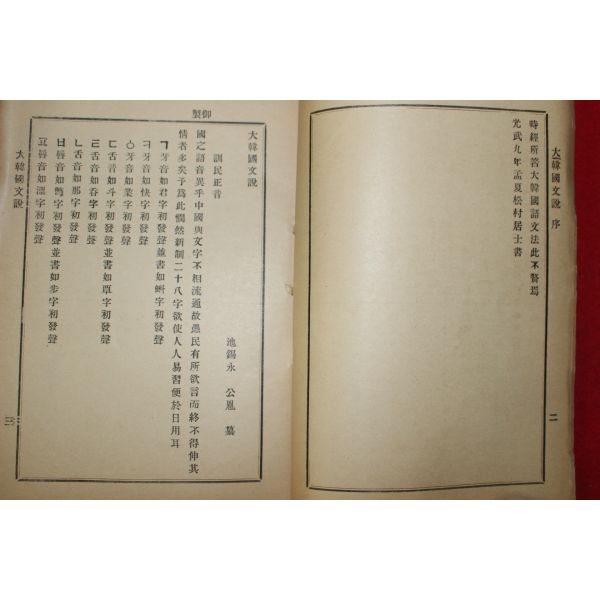 大韓國文說 序
二
時經所著大韓國語文法此不贅焉
光武九年孟夏松村居士書
大韓國文說
池錫永 公胤 纂
御製
訓民正音
國之語音異乎中國與文字不相流通故愚民有所欲言而終不得伸其
情者多矣予為此憫然新制二十八字欲使人人易習便於日用耳
ㄱ牙音如君字初發聲並書如虯字初發聲
ㅋ牙音如快字初發聲
ㆁ牙音如業字初發聲
ㄷ舌音如斗字初發聲並書如覃字初發聲
ㅌ舌音如呑字初發聲
ㄴ舌音如那字初發聲
ㅂ唇音如彆字初發聲並書如步字初發聲
ㅍ唇音如漂字初發聲
大韓國文說
三